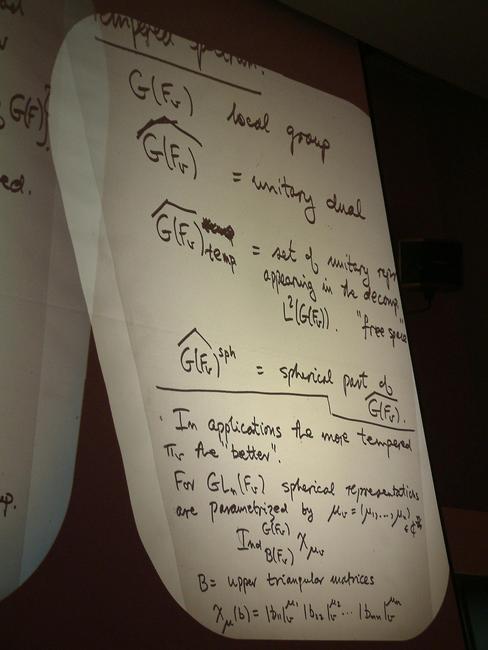 Tempered spectrum.
G(F_v) local group
\widehat{G(F_v)} = unitary dual
\widehat{G(F_v)}_{temp} = set of unitary repr
appearing in the decomp.
L²(G(F_v)). "free space
\widehat{G(F_v)}^{sph} = spherical part of
\widehat{G(F_v)}.
· In applications the more tempered
π_v the "better".
For GL_n(F_v) spherical representations
are parametrized by μ_v = (μ_1, ..., μ_n) ∈ ℂ^n
Ind_{B(F_v)}^{G(F_v)} χ_{μ_v}
B = upper triangular matrices
χ_μ(b) = |b_{11}|_v^{μ_1} |b_{22}|_v^{μ_2} ... |b_{nn}|_v^{μ_n}
G(F)}
ed.
p.